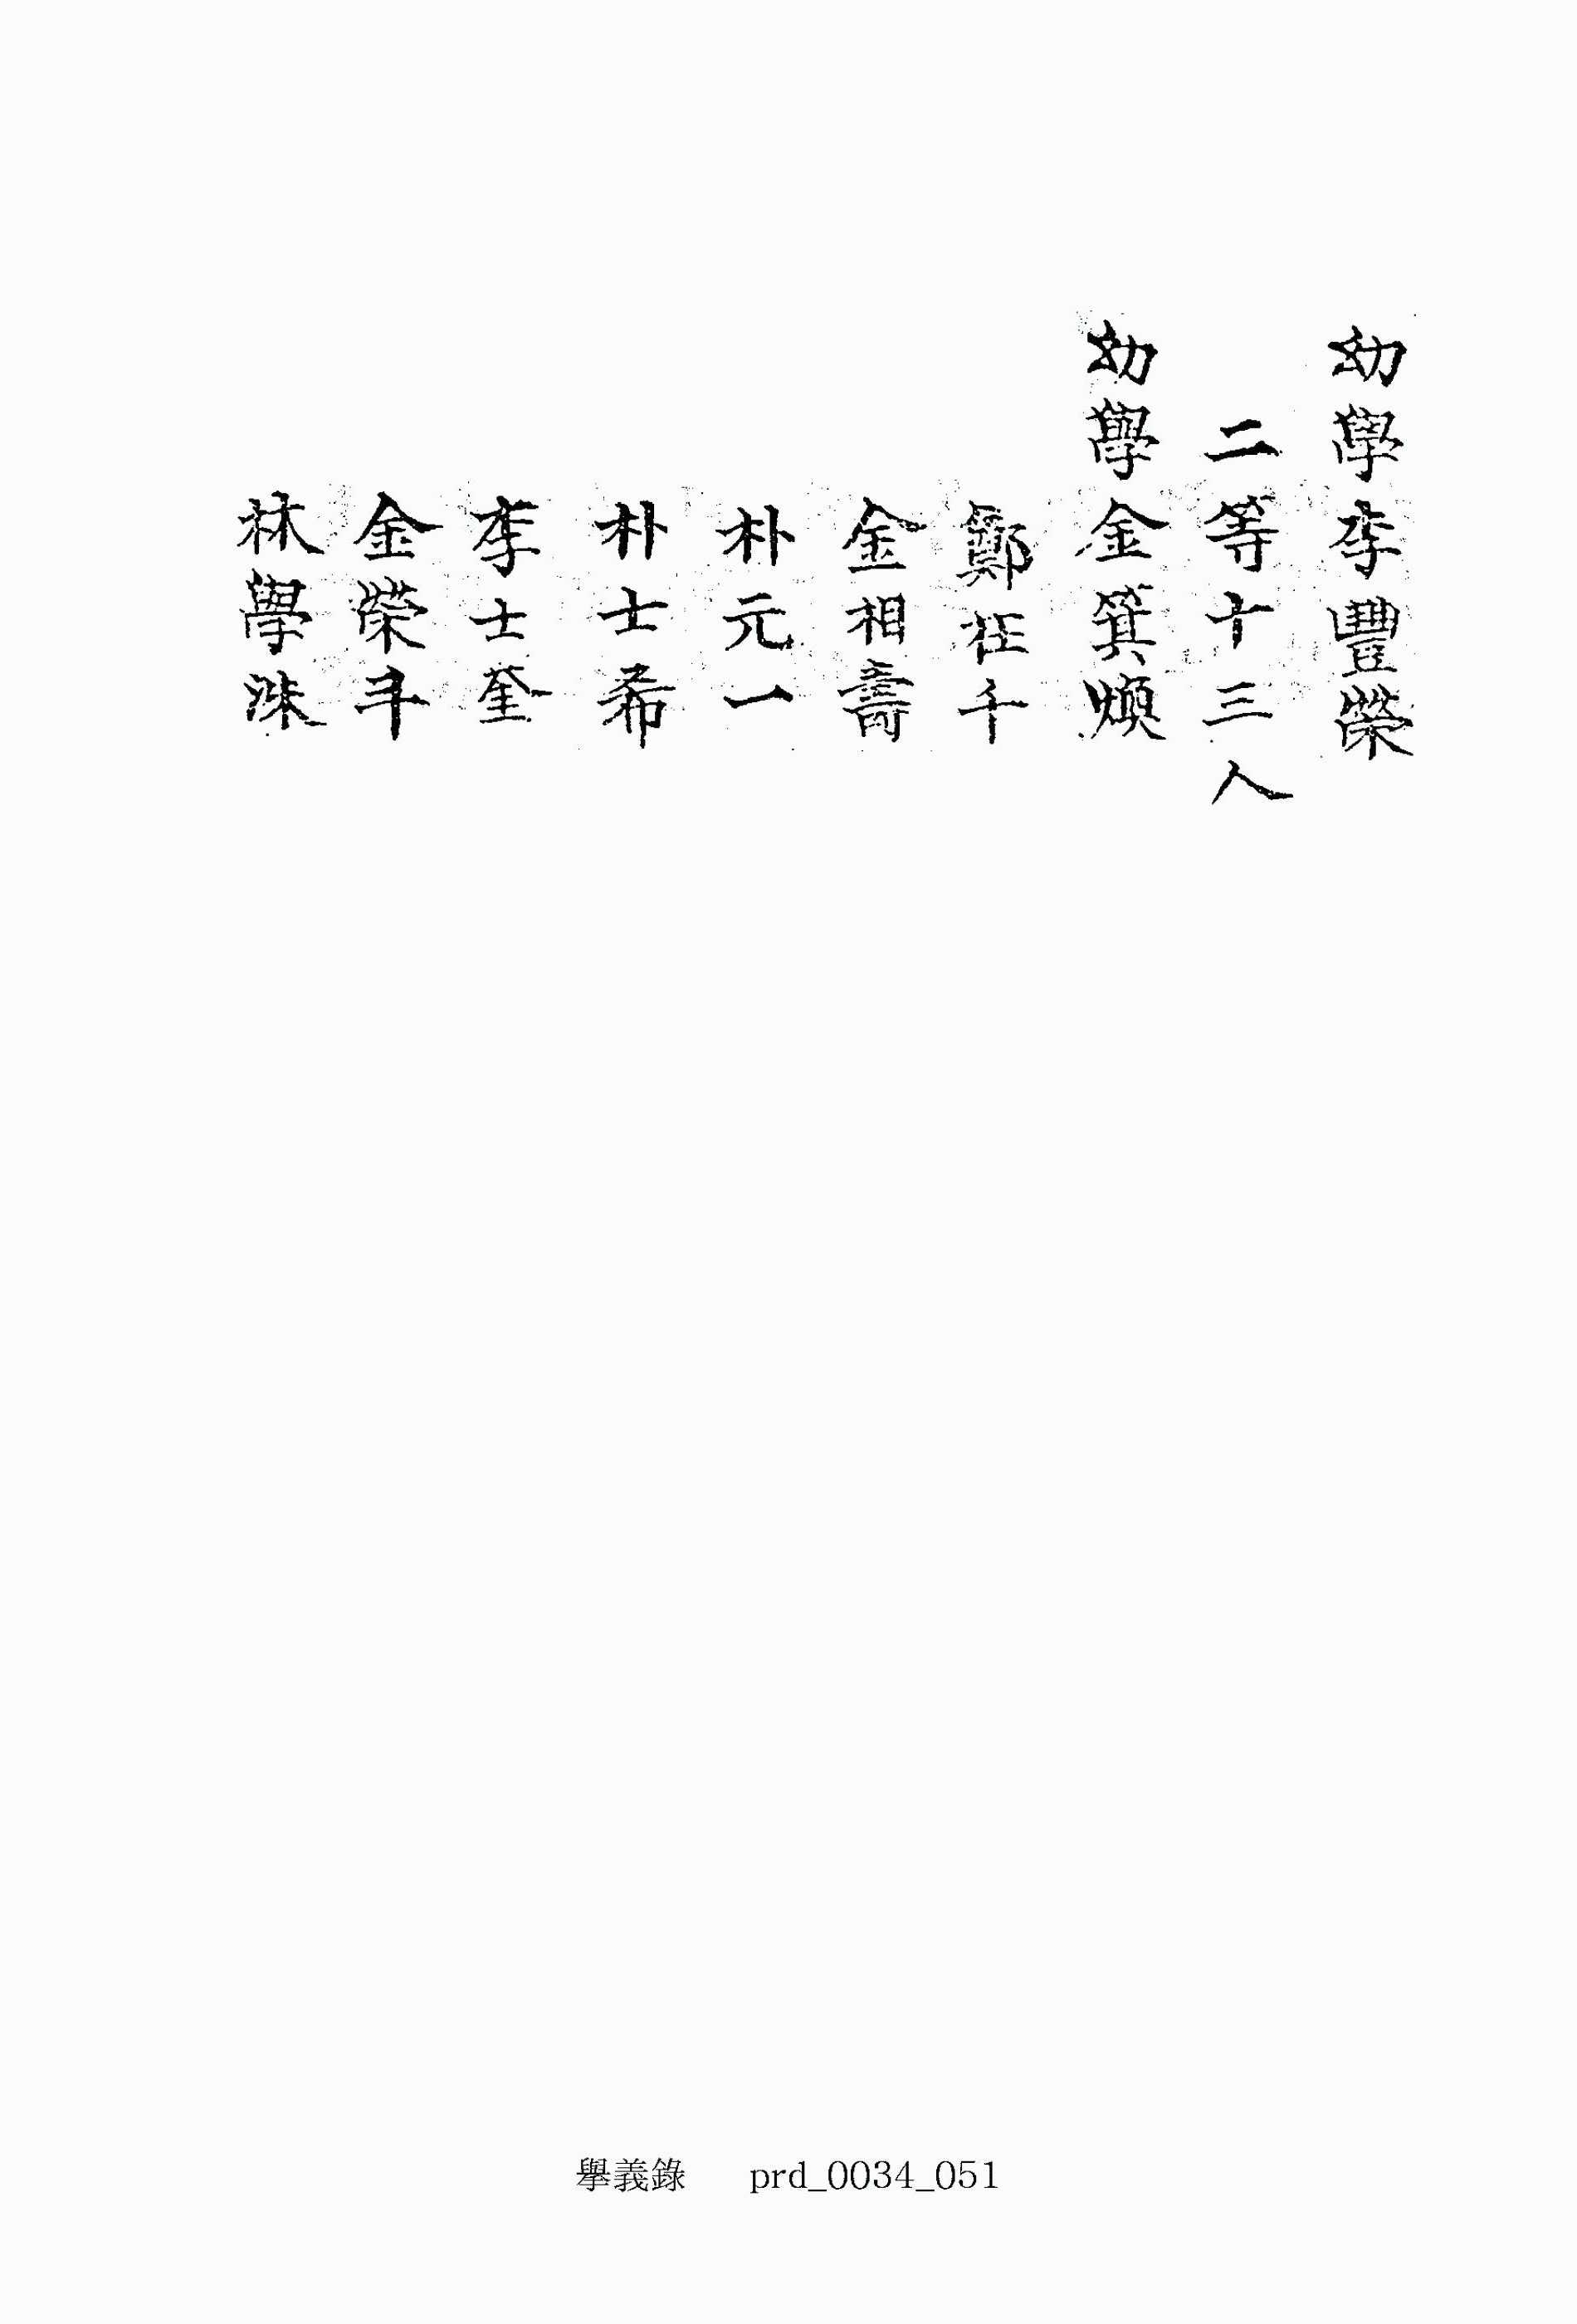 幼學李豐榮
二等十三人
幼學金箕煥
鄭枉千
金相壽
朴元一
朴士希
李士奎
金榮斗
林學洙
擧義錄 prd_0034_051